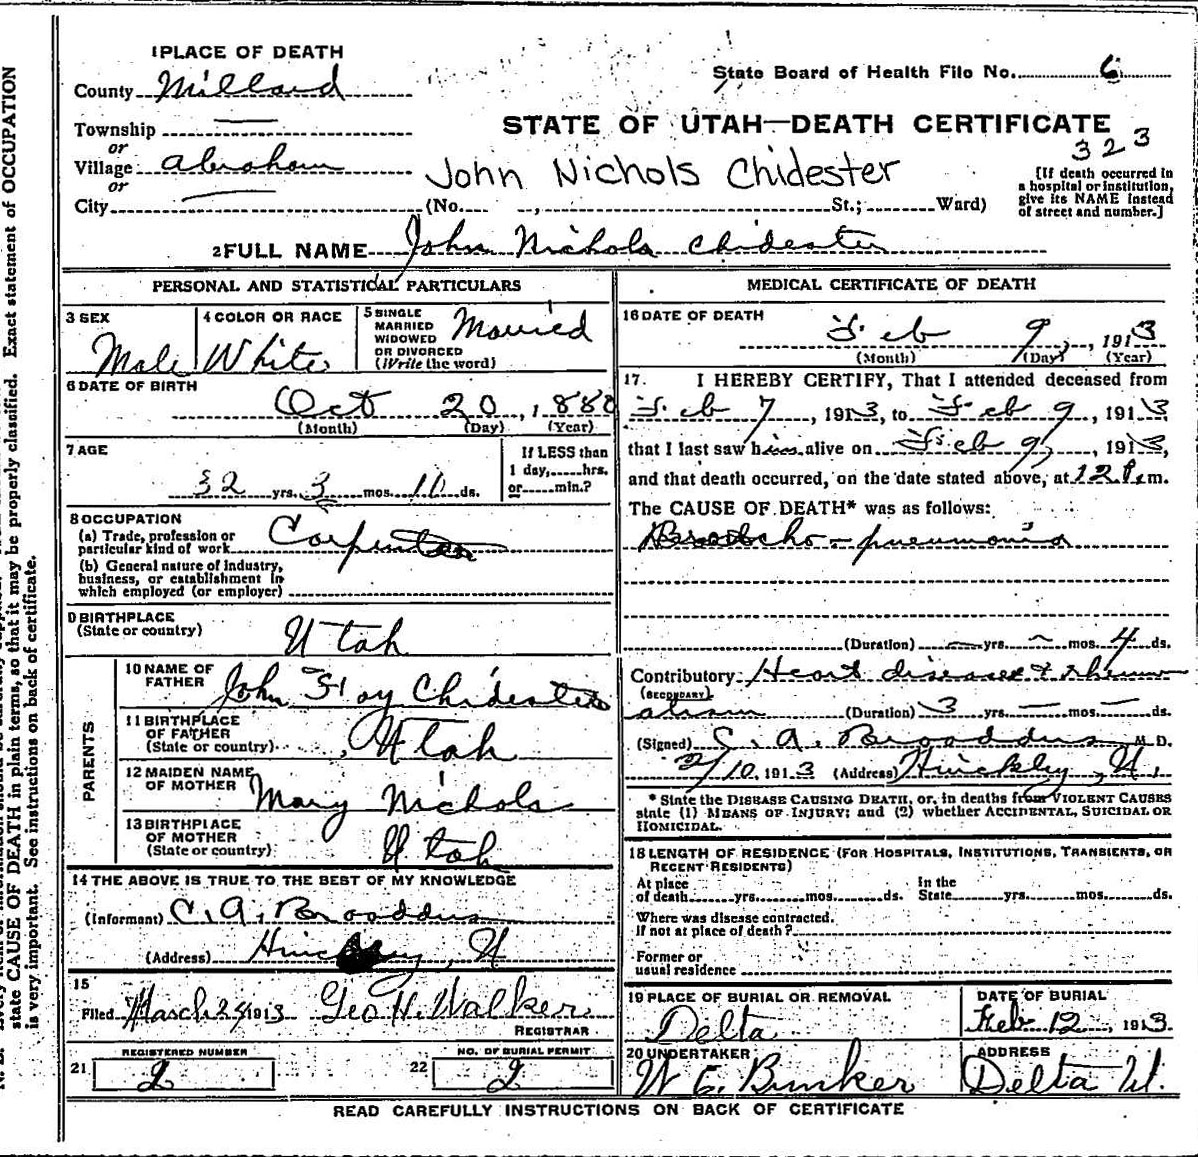 1 PLACE OF DEATH
County Millard
State Board of Health File No. 6
Township —
or
STATE OF UTAH—DEATH CERTIFICATE
323
Village Abraham
or
John Nichols Chidester
[If death occurred in
a hospital or institution,
give its NAME instead
of street and number.]
City (No. , St.; Ward)
2 FULL NAME John Nichols Chidester
PERSONAL AND STATISTICAL PARTICULARS
3 SEX
Male
4 COLOR OR RACE
White
5 SINGLE
MARRIED
WIDOWED
OR DIVORCED
(Write the word)
Married
6 DATE OF BIRTH
Oct 20, 1880
(Month) (Day) (Year)
7 AGE
32 yrs. 3 mos. ds.
If LESS than
1 day, hrs.
or min.?
8 OCCUPATION
(a) Trade, profession or
particular kind of work Carpenter
(b) General nature of industry,
business, or establishment in
which employed (or employer)
9 BIRTHPLACE
(State or country)
Utah
PARENTS
10 NAME OF
FATHER
John Foy Chidester
11 BIRTHPLACE
OF FATHER
(State or country)
Utah
12 MAIDEN NAME
OF MOTHER
Mary Nichols
13 BIRTHPLACE
OF MOTHER
(State or country)
Utah
14 THE ABOVE IS TRUE TO THE BEST OF MY KNOWLEDGE
(Informant) C. A. Broaddus
(Address) Hinckley, U
15
Filed March 1913 Geo H. Walker
REGISTRAR
REGISTERED NUMBER
21 2
NO. OF BURIAL PERMIT
22 2
MEDICAL CERTIFICATE OF DEATH
16 DATE OF DEATH
Feb 9, 1913
(Month) (Day) (Year)
17. I HEREBY CERTIFY, That I attended deceased from
Feb 7, 1913, to Feb 9, 1913
that I last saw him alive on Feb 9, 1913,
and that death occurred, on the date stated above, at 12 P.m.
The CAUSE OF DEATH* was as follows:
Broncho-pneumonia
(Duration) — yrs. — mos. 4 ds.
Contributory Heart disease & rheum-
(SECONDARY)
atism (Duration) 3 yrs. — mos. — ds.
(Signed) C. A. Broaddus M. D.
2/10, 1913 (Address) Hinckley, U.
* State the DISEASE CAUSING DEATH, or, in deaths from VIOLENT CAUSES
state (1) MEANS OF INJURY; and (2) whether ACCIDENTAL, SUICIDAL OR
HOMICIDAL.
18 LENGTH OF RESIDENCE (FOR HOSPITALS, INSTITUTIONS, TRANSIENTS, OR
RECENT RESIDENTS)
At place
of death yrs. mos. ds.
In the
State yrs. mos. ds.
Where was disease contracted.
If not at place of death?
Former or
usual residence
19 PLACE OF BURIAL OR REMOVAL
Delta
DATE OF BURIAL
Feb 12, 1913
20 UNDERTAKER
W E. Bunker
ADDRESS
Delta U.
READ CAREFULLY INSTRUCTIONS ON BACK OF CERTIFICATE
state CAUSE OF DEATH in plain terms, so that it may be properly classified. Exact statement of OCCUPATION
is very important. See instructions on back of certificate.